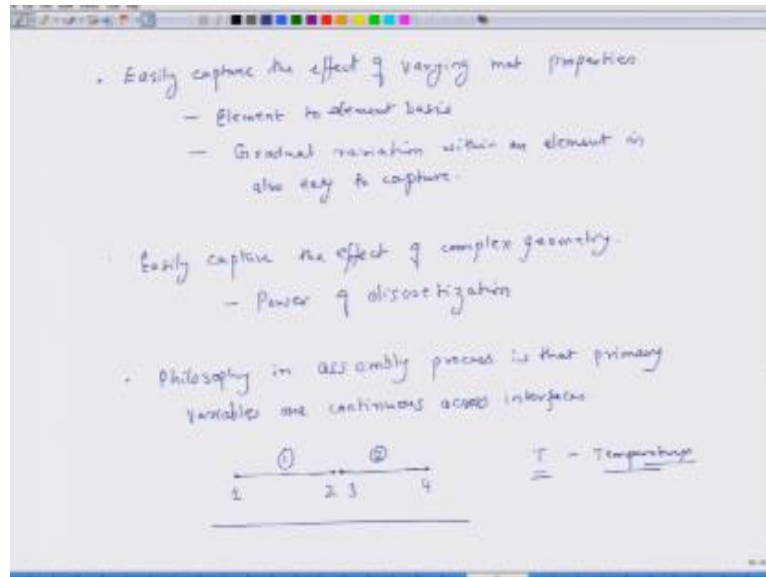 . Easily capture the effect of varying mat properties
- Element to element basis
- Gradual variation within an element is
also easy to capture.
Easily capture the effect of complex geometry.
- Power of discretization
. Philosophy in assembly process is that primary
variables are continuous across interfaces
① ②
T - Temperature
1 2 3 4